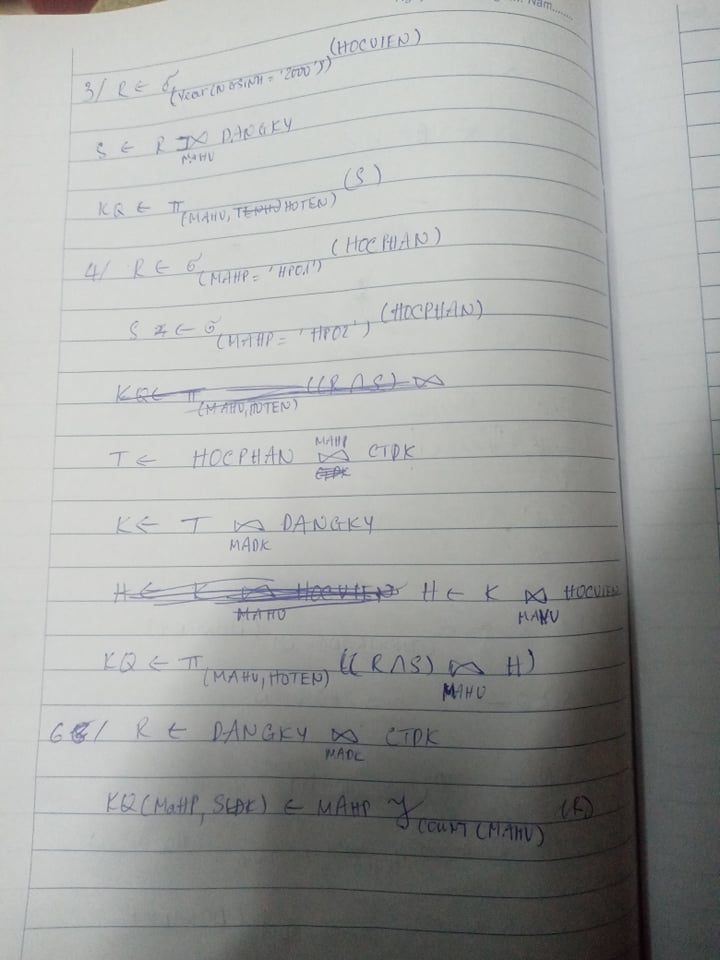 Nam.......
3/ R ← σ(Year(NGSINH = '2000')) (HOCVIEN)
S ← R ⋈ MAHV DANGKY
KQ ← π(MAHV, HOTEN) (S)
4/ R ← σ(MAHP = 'HP01') (HOCPHAN)
S ← σ(MAHP = 'HP02') (HOCPHAN)
KQ ← π(MAHV, HOTEN) ((R ∩ S) ⋈
T ← HOCPHAN ⋈ MAHP CTDK
K ← T ⋈ MADK DANGKY
H ← K ⋈ MAHV HOCVIEN H ← K ⋈ MAHV HOCVIEN
KQ ← π(MAHV, HOTEN) ((R ∩ S) ⋈ MAHV H)
6/ R ← DANGKY ⋈ MADK CTDK
KQ(MaHP, SLDK) ← MAHP ℱ COUNT(MAHV) (R)